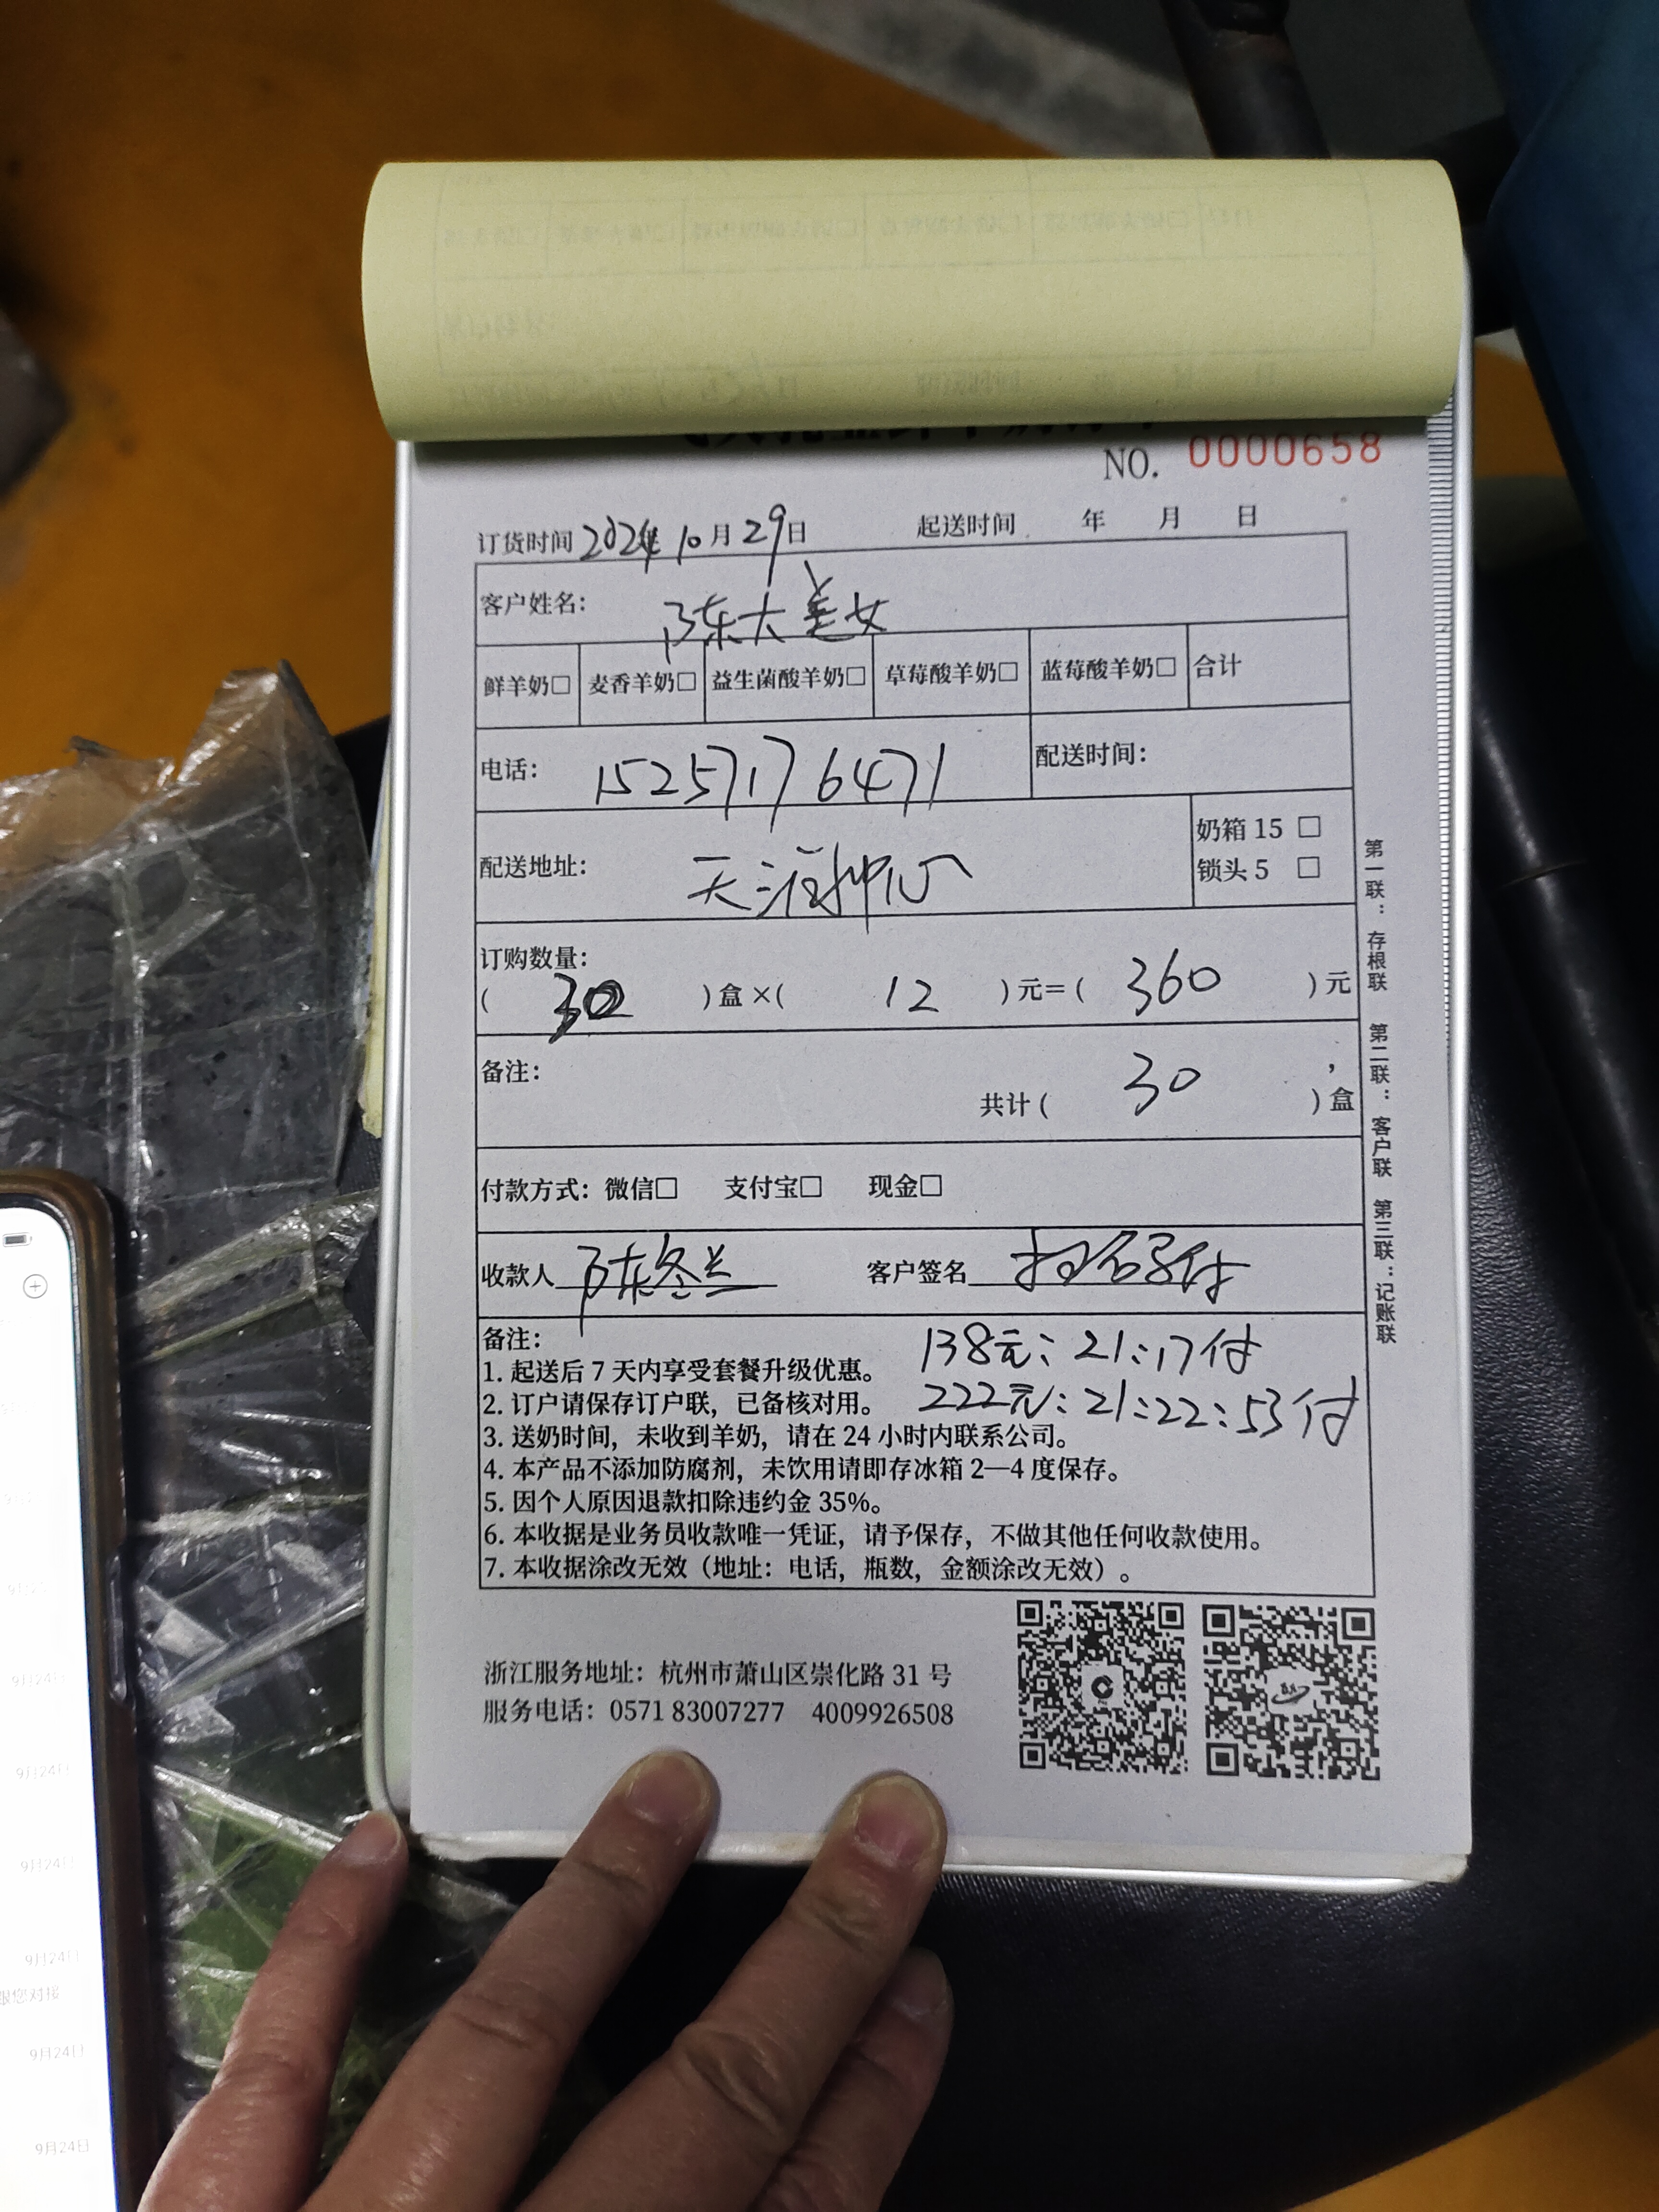 NO. 0000658
订货时间 2024年 10月 29日 起送时间 年 月 日
客户姓名： 陈大美女
鲜羊奶□ 麦香羊奶□ 益生菌酸羊奶□ 草莓酸羊奶□ 蓝莓酸羊奶□ 合计
电话： 15257176471 配送时间：
配送地址： 天涯
奶箱 15 □
锁头 5 □
订购数量：
( 30 ) 盒 ×( 12 ) 元＝( 360 ) 元
备注：
共计 ( 30 ) 盒
付款方式：微信□ 支付宝□ 现金□
收款人 陈冬兰 客户签名
备注：
138元：21:17付
1. 起送后 7 天内享受套餐升级优惠。
222元：21:22:53付
2. 订户请保存订户联，已备核对用。
3. 送奶时间，未收到羊奶，请在 24 小时内联系公司。
4. 本产品不添加防腐剂，未饮用请即存冰箱 2—4 度保存。
5. 因个人原因退款扣除违约金 35%。
6. 本收据是业务员收款唯一凭证，请予保存，不做其他任何收款使用。
7. 本收据涂改无效（地址：电话，瓶数，金额涂改无效）。
第一联：存根联 第二联：客户联 第三联：记账联
浙江服务地址：杭州市萧山区崇化路 31 号
服务电话：0571 83007277 4009926508
9月24日
9月24日
9月24日
9月24日
跟您对接
9月24日
9月24日